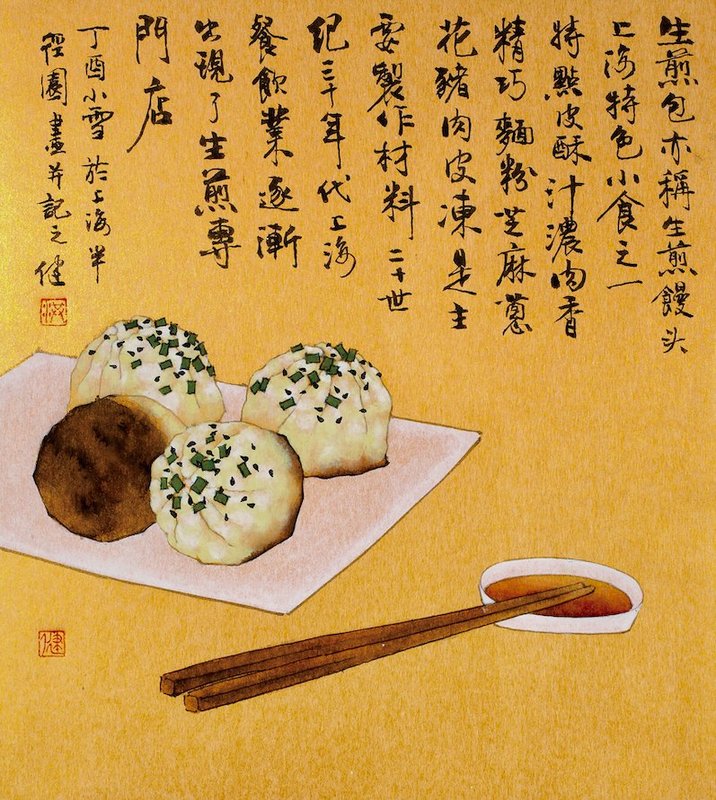 生煎包亦稱生煎饅头
上海特色小食之一
特點皮酥汁濃肉香
精巧麵粉芝麻蔥
花豬肉皮凍是主
要製作材料二十世
纪三十年代上海
餐飲業逐漸
出現了生煎專
門店
丁酉小雪於上海半
徑園畫并記之健
健